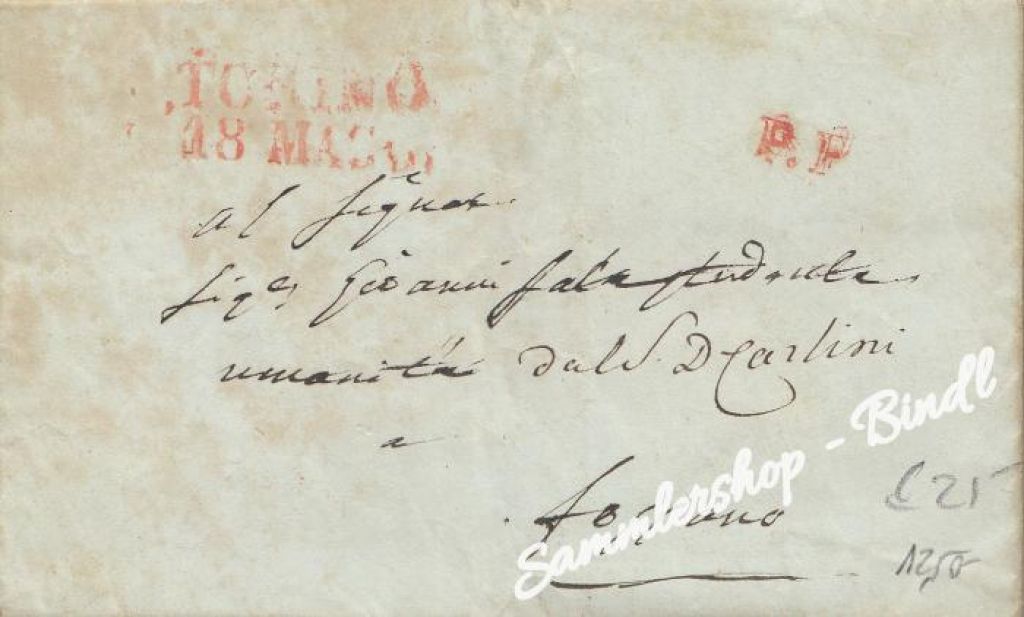 TORINO
18 MAG
P.P
al Sig.r
Sig.r Giovanni Sala studente
umanità dal S. D Carlini
a
Fossano
Sammlershop - Bindl
£ 25
12,50